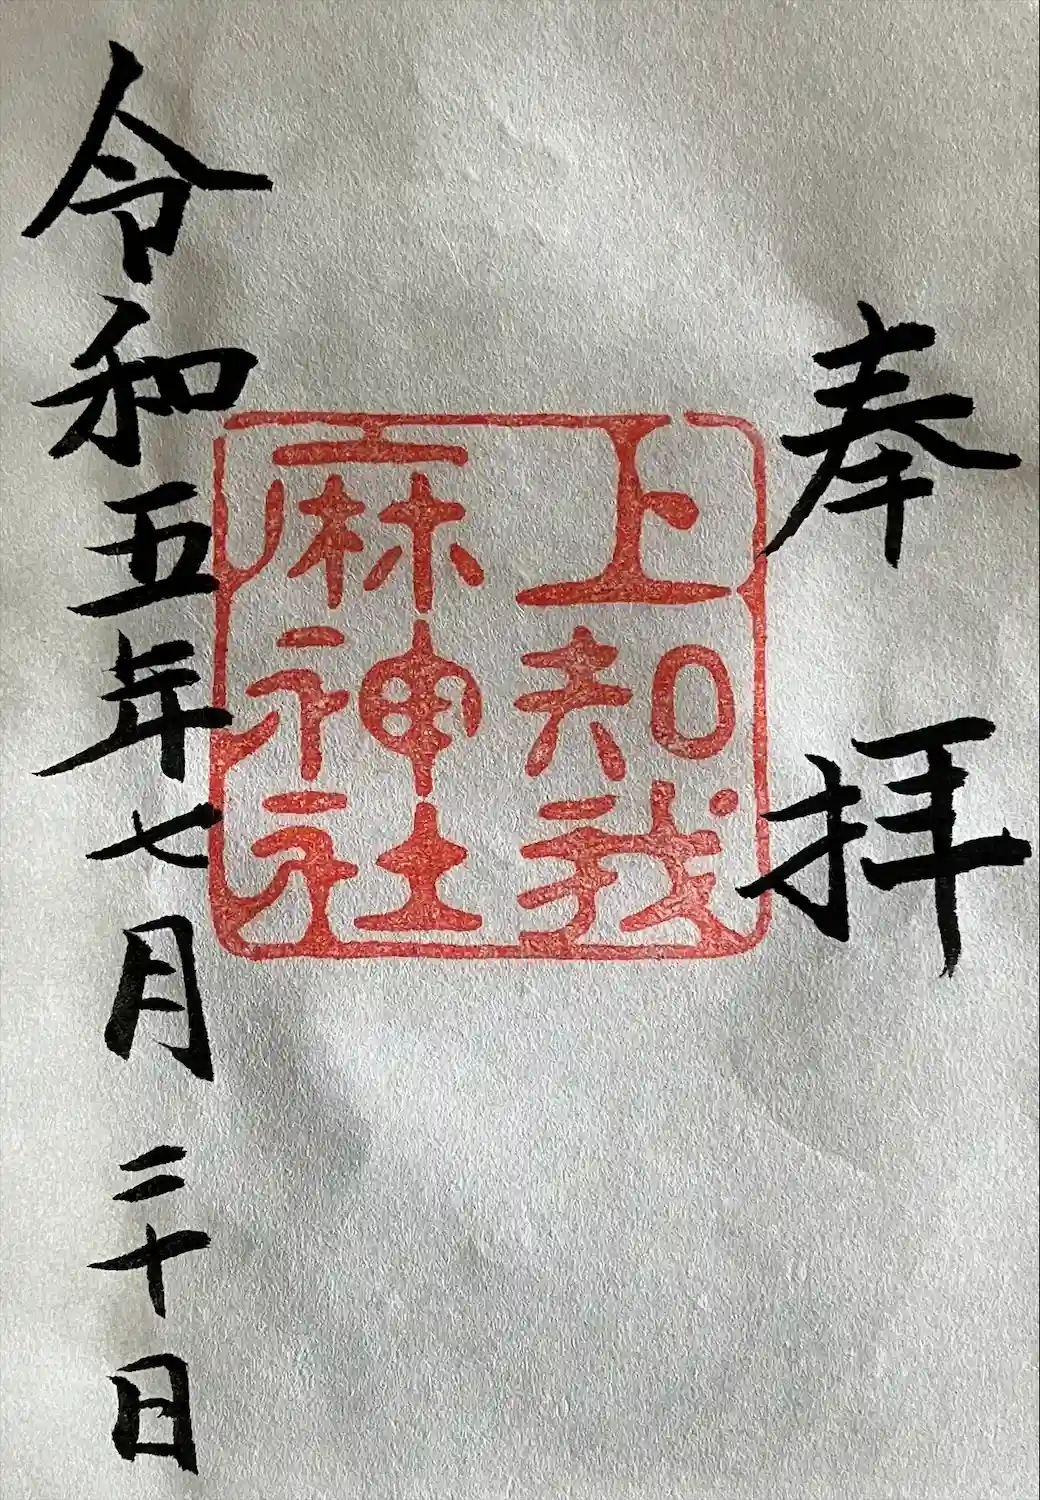 奉拝
上知我
麻神社
令和五年七月二十日